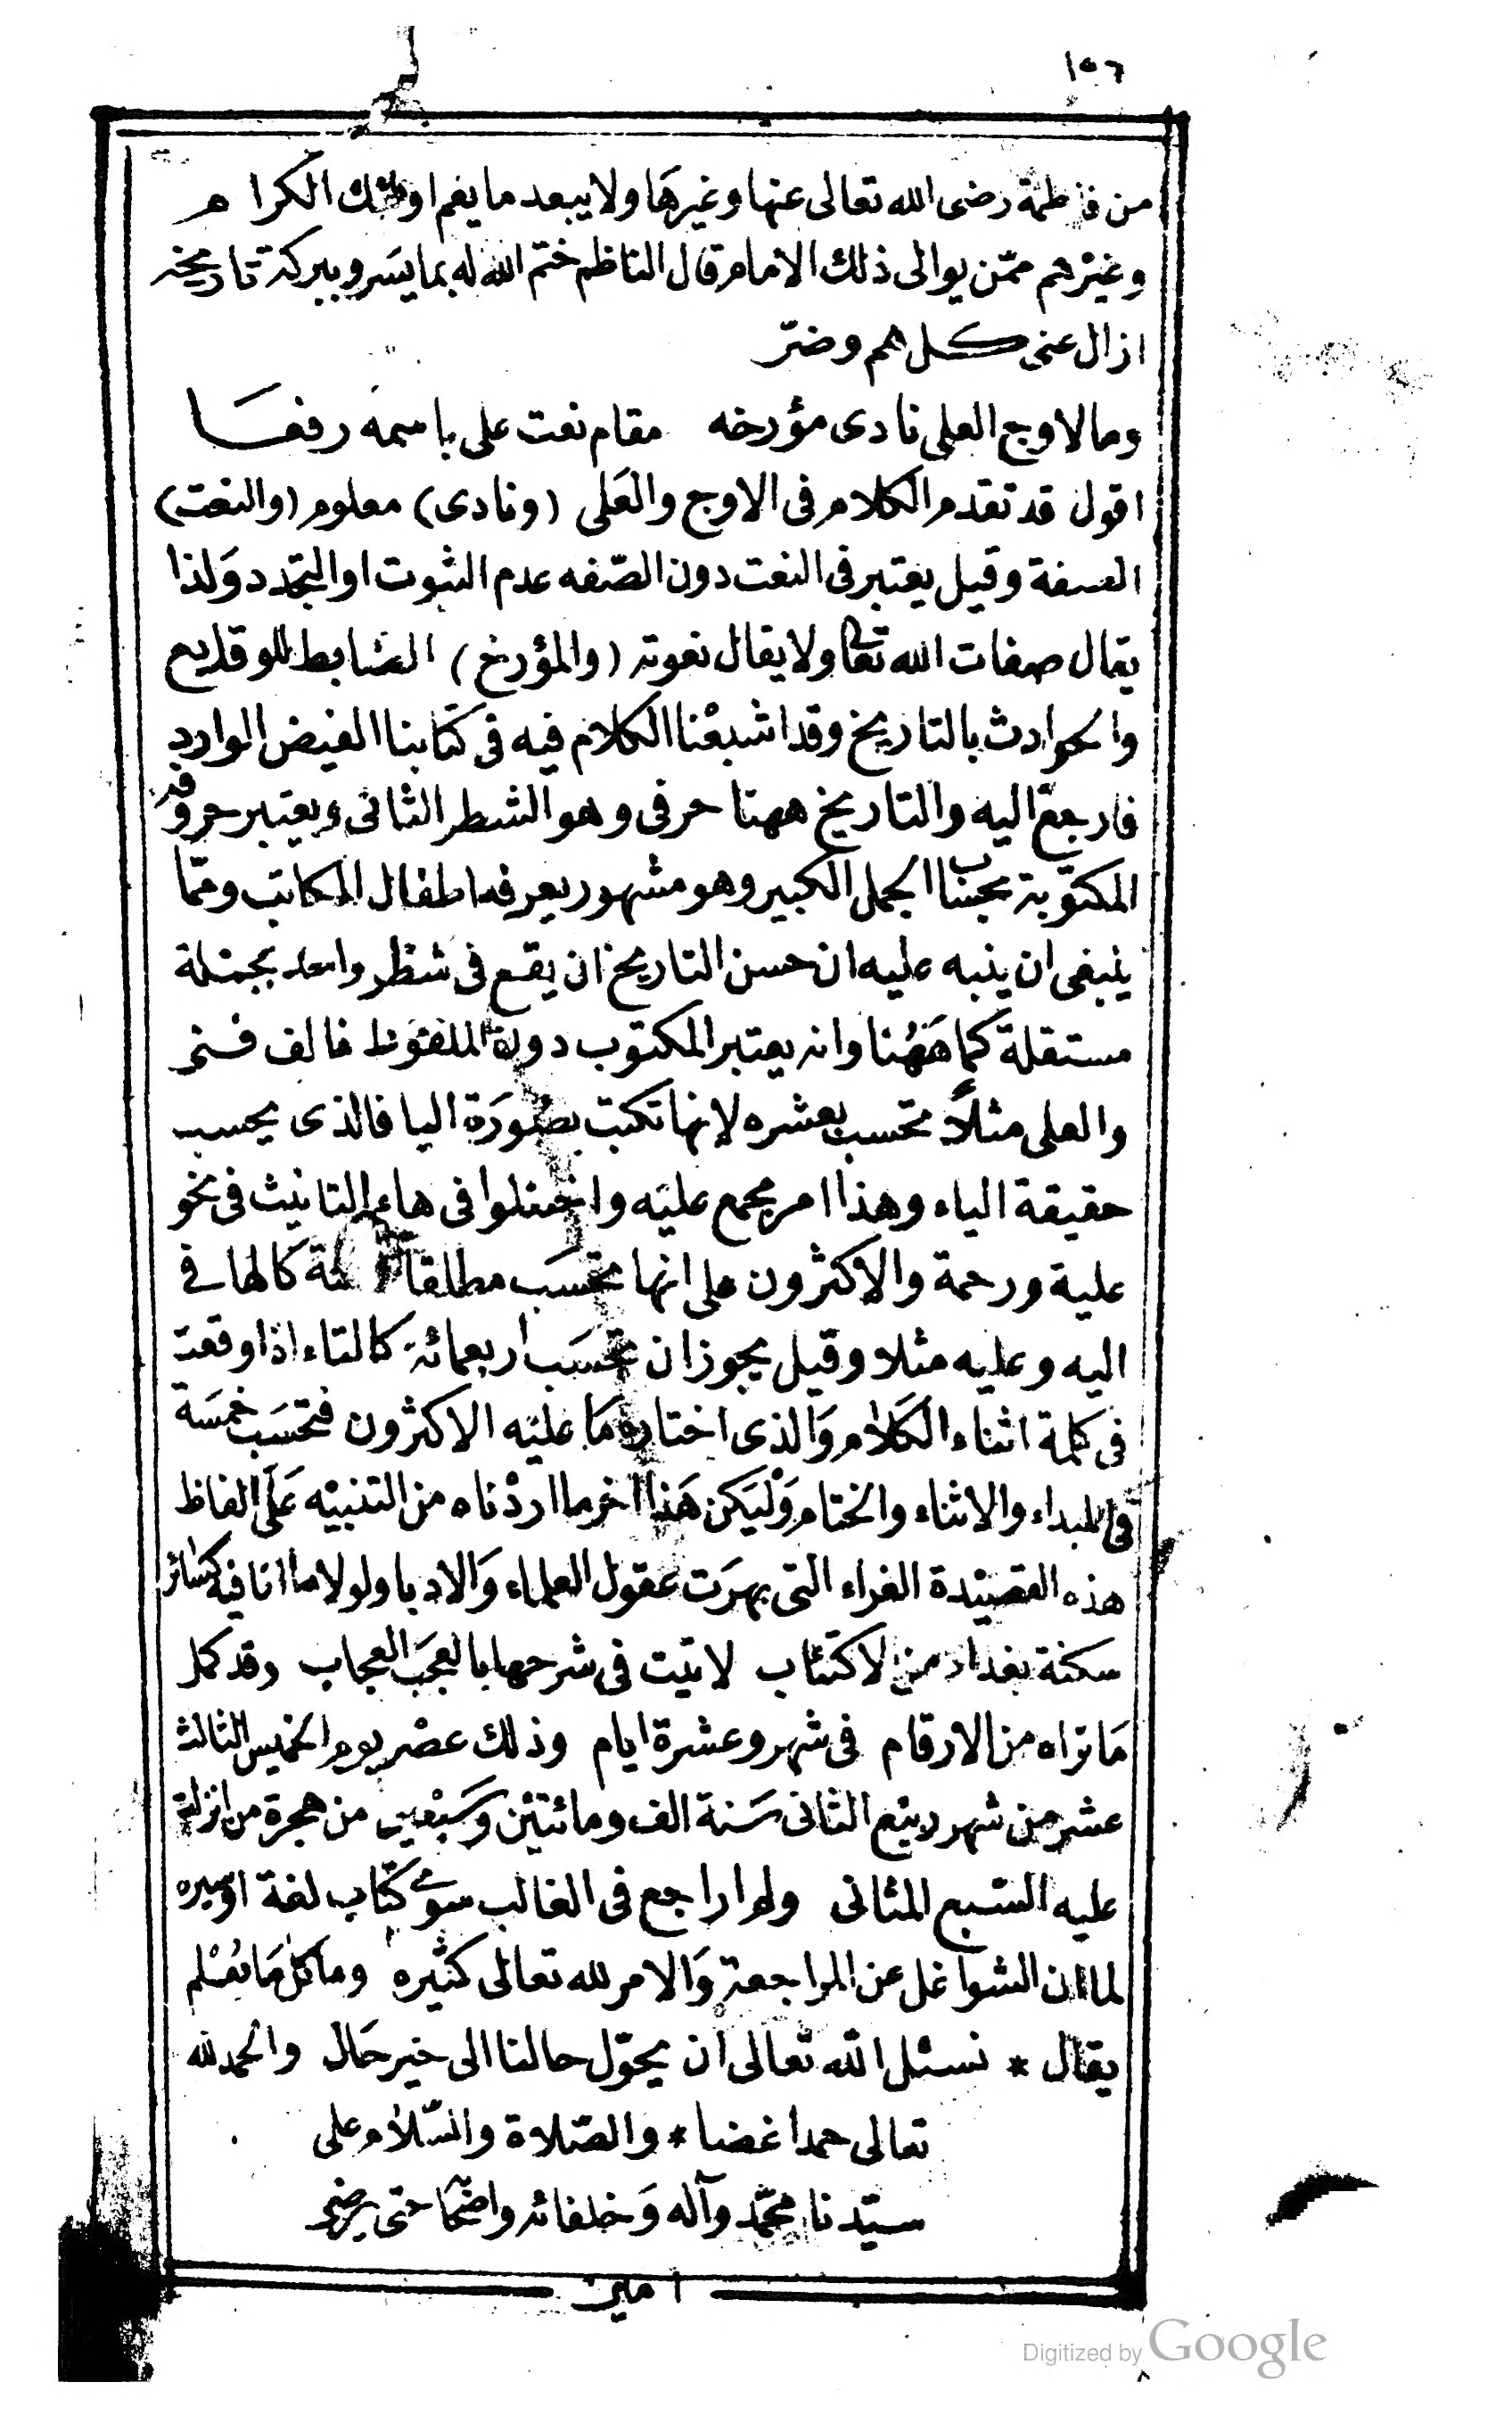 ١٥٦
من فاطمة رضى الله تعالى عنها وغيرها ولا يبعد ما يغم اولئك الكرام
وغيرهم ممّن يوالى ذلك الامام قال الناظم ختم الله له بما يسر وببركة تاريخه
ازال عنى كل هم وضرّ
وما لاوج العلى نادى مؤرخه مقام نعت على باسمه رفعا
اقول قد تقدم الكلام فى الاوج والعلى (ونادى) معلوم (والنعت)
الصفة وقيل يعتبر فى النعت دون الصّفه عدم الثبوت او التجدد ولذا
يقال صفات الله تعالى ولا يقال نعوته (والمؤرخ) الضابط للوقايع
والحوادث بالتاريخ وقد اشبعْنا الكلام فيه فى كتابنا الفيض الوارد
فارجع اليه والتاريخ ههنا حرفى وهو الشطر الثانى ويعتبر حروفه
المكتوبة بحساب الجمل الكبير وهو مشهور يعرفه اطفال المكاتب وممّا
ينبغى ان ينبه عليه ان حسن التاريخ ان يقع فى شطر واحد بجملة
مستقلة كما ههُنا وانه يعتبر المكتوب دون الملفوظ فالف
والعلى مثلاً تحسب بعشره لانها تكتب بصورَة اليا فالذى يحسب
حقيقة الياء وهذا امر مجمع عليه واختلفوا فى هاء التانيث فى نحو
علية ورحمة والاكثرون على انها تحسَب مطلقا خمسة كالها فى
اليه وعليه مثلا وقيل يجوز ان تحسَب اربعمائة كالتاء اذا وقعت
فى كلمة اثناء الكلام وَالذى اختاره مَا عليه الاكثرون فتحسَب خمسَة
فى المبداء والاثناء والختام وَلْيَكن هَذا اخر ما اردْناه من التنبيْه عَلَى الفاظ
هذه القصيْدة الغراء التى بهرَت عقول العلماء وَالادبا ولولا ما انا فيه كسائر
سكنة بغداد من الاكتئاب لاتيت فى شرحها بالعجَب العجاب وقد كمل
مَا تراه من الارقام فى شهر وعشرة ايام وذلك عصْر يوم الخميس الثالث
عشر من شهر ربيْع الثانى سَنة الف ومائتيْن وَسَبْعين من هجرة من انزلت
عليه السّبع المثانى ولم اراجع فى الغالب سوى كتاب لغة او سيره
لما ان الشواغل عن المراجعة وَالامر لله تعالى كثيره وما كل مَا يُعْلم
يقال * نسئل الله تعالى ان يحوّل حالنا الى خير حَال والحمد لله
تعالى حمدا غضا * والصّلاة والسّلام على
سيّدنا محمّد وآله وَخلفائه واصحابه حتى يرضى
امين
Digitized by Google